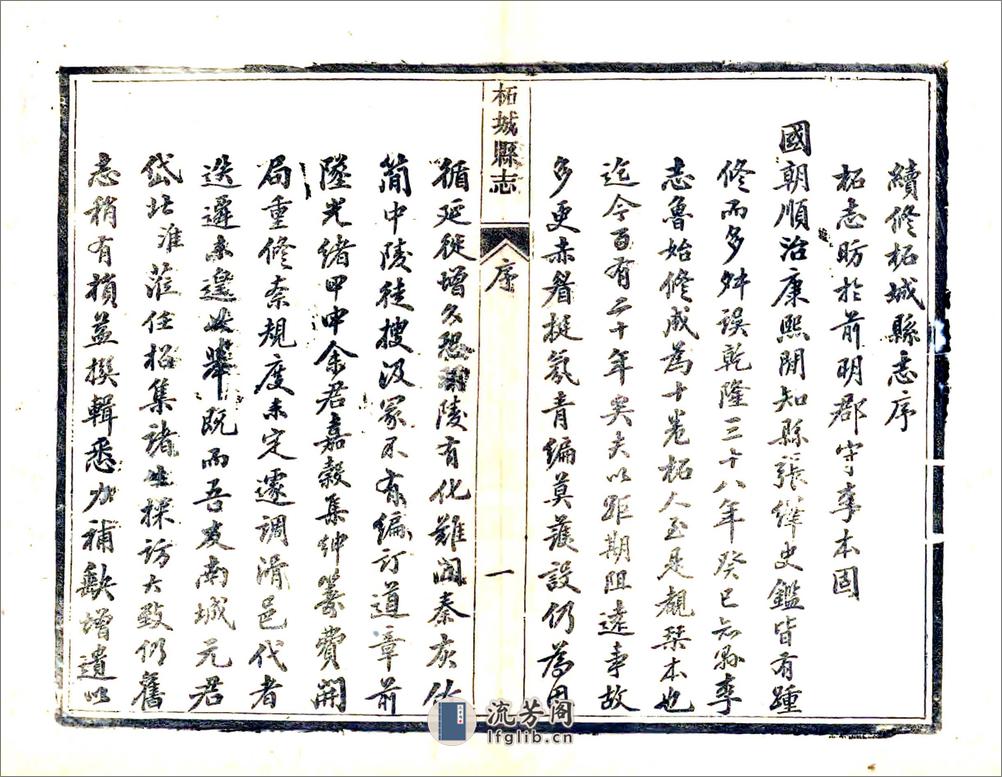 續修柘城縣志序
柘志昉於前明郡守李本固
國朝順治康熙間知縣張繹史鑑皆有踵
修而多舛誤乾隆三十八年癸巳知縣李
志魯始修成為十卷柘人至是覩栞本也
迄今百有二十年矣夫以距期阻遠事故
多更赤眚挻氛青編莫護設仍為因
柘城縣志
序
一
循延徙增久恐陵有化難闻秦灰
簡中陵徒搜汲冢不有編訂道章前
墜光緒甲申余君嘉穀集紳籌費開
局重修奈規度未定遽調滑邑代者
迭遷未遑此舉既而吾友南城元君
岱北淮蒞任招集諸生採訪大致仍舊
志稍有損益撰輯悉力補缺增遺以
流芳阁
lfglib.cn